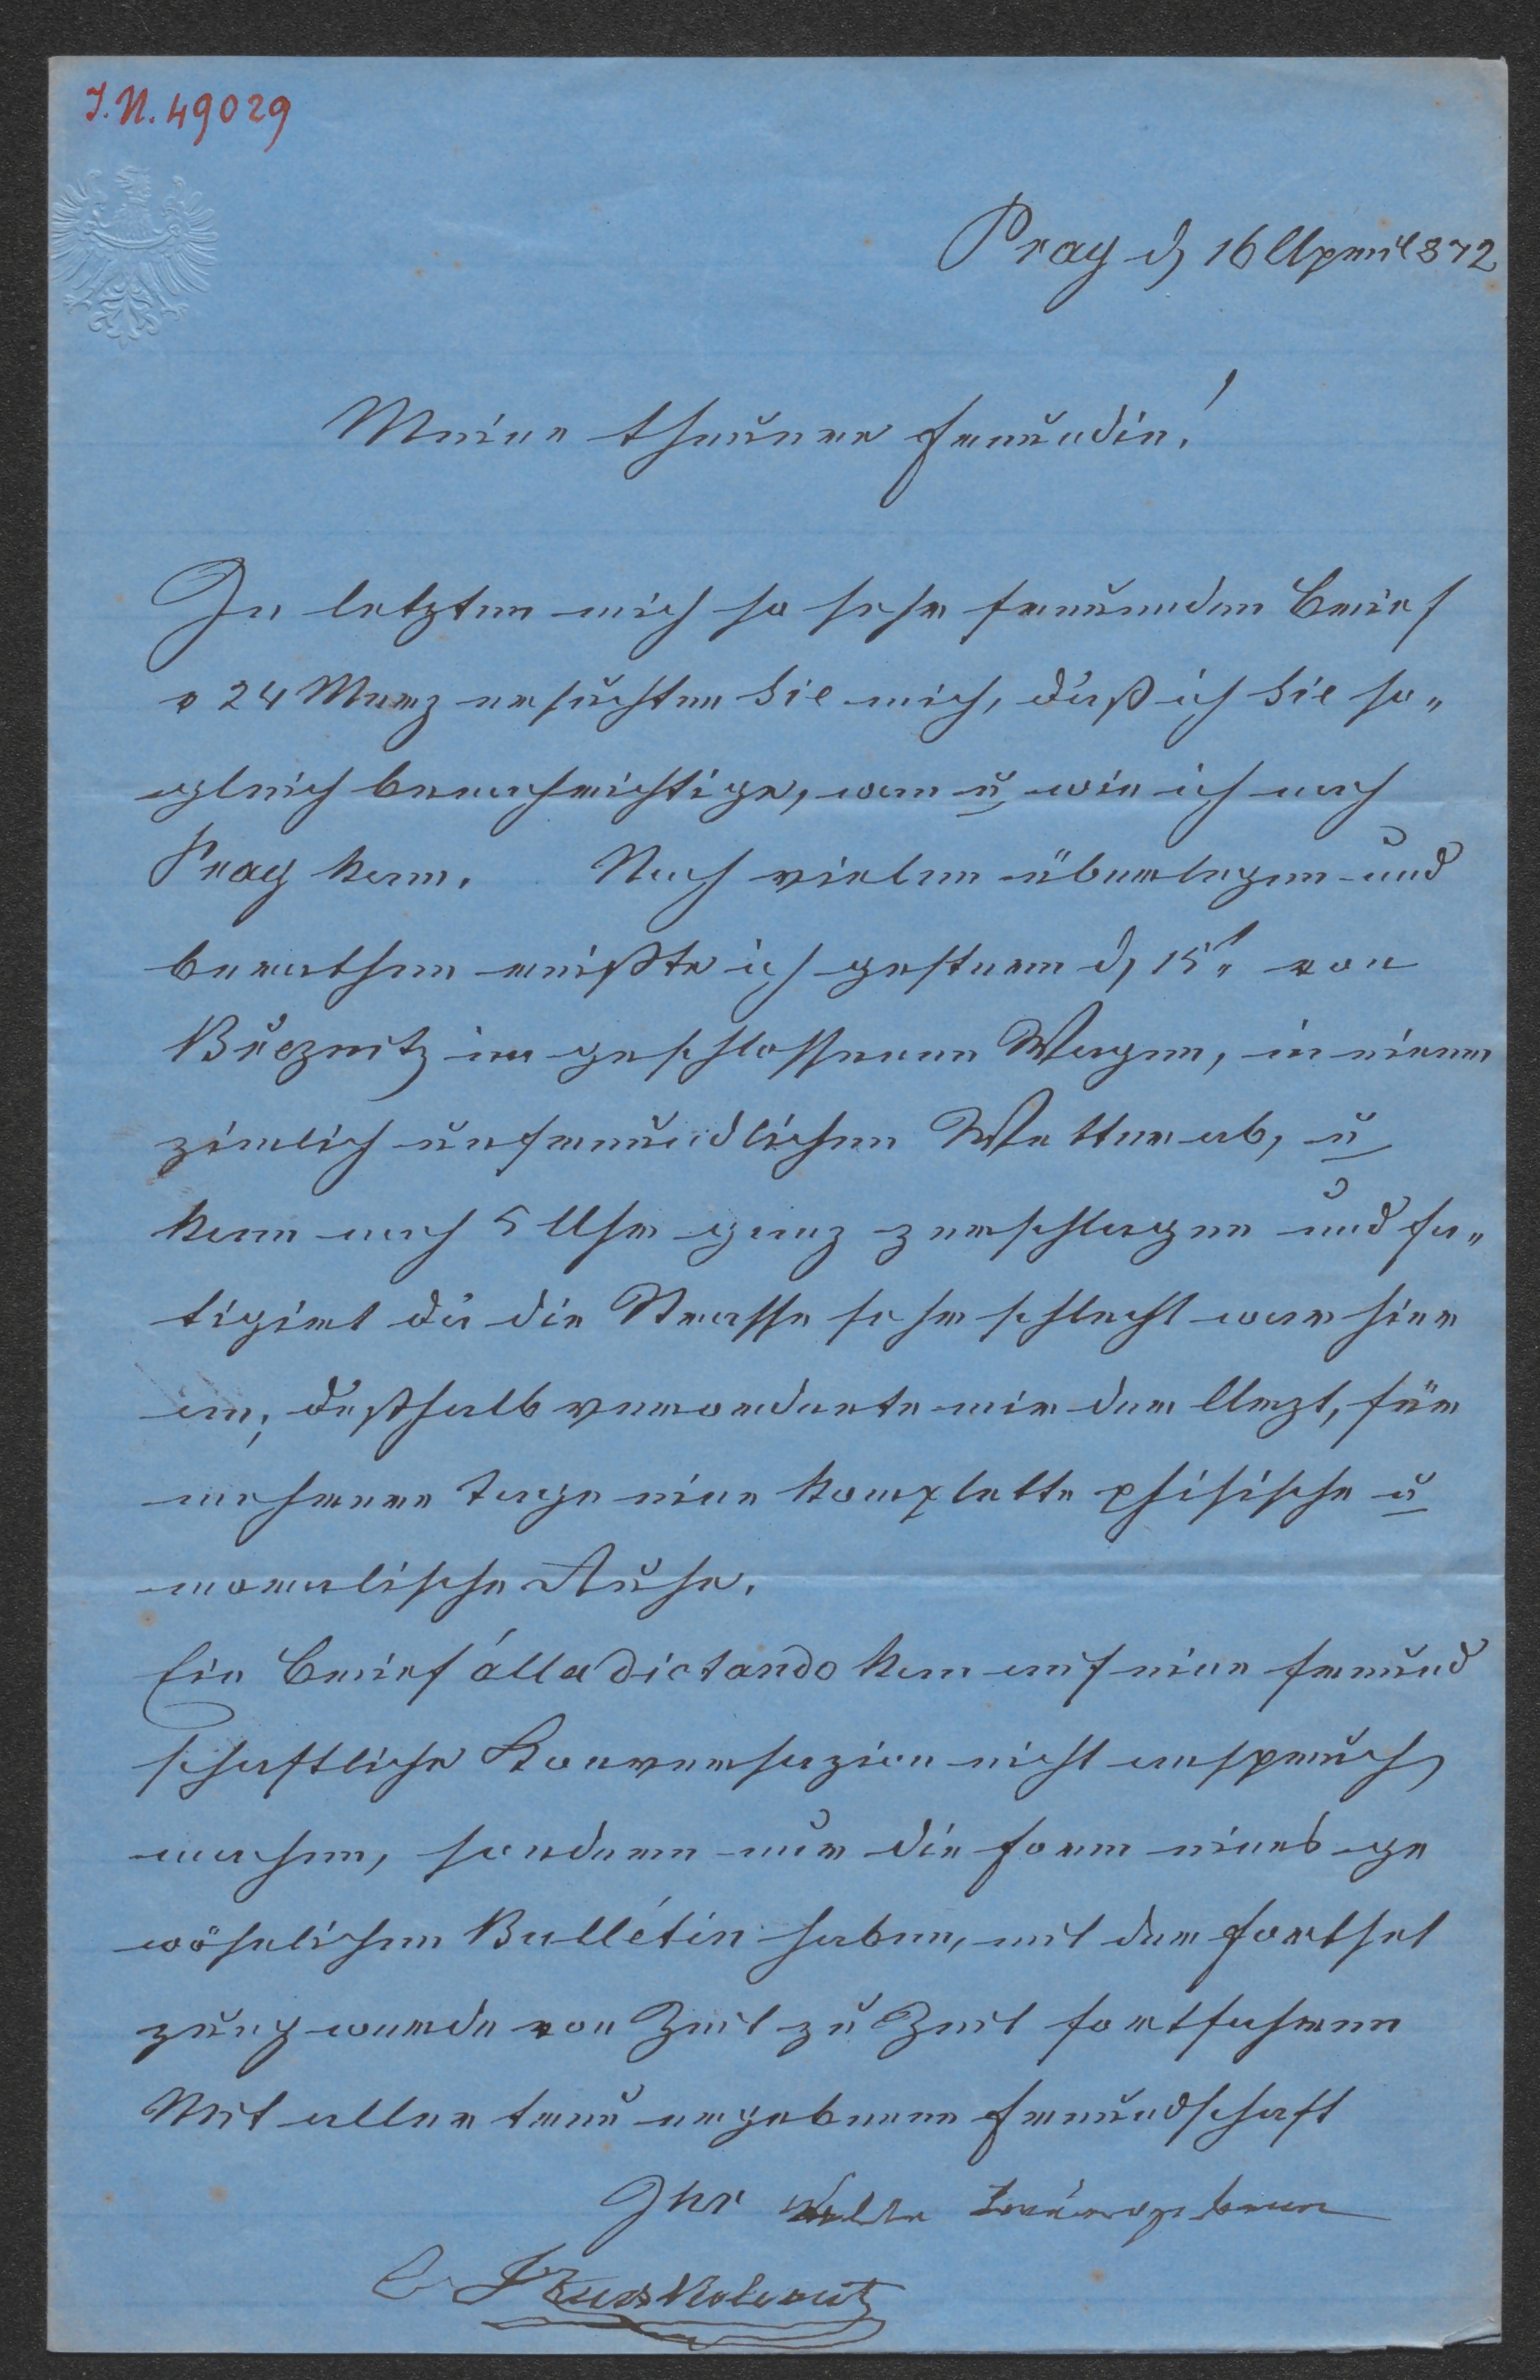 I.N. 49029
Prag d 16 April 872
Meine theuere Freundin!
In letzten mich so sehr freuenden Brief
v 24 Merz ersuchten Sie mich, daß ich Sie so„
gleich benachrichtige, wan u wie ich nach
Prag kam. Nach vielen überlegen und
berathen reißte ich gestern d 15t von
Březnitz im geschlossenen Wagen, in einem
zimlich unfreundlichen Wetter ab, u
kam nach 5 Uhr ganz zerschlagen und fa„
tigirt da die Strasse sehr schlecht war hier
an, deßhalb verordnete mir der Arzt, für
mehrere Tage eine komplette phisische u
moralische Ruhe.
Ein Brief álla dictando kan auf eine freund
schaftliche Konversazion nicht anspruch
machen, sondern nur die Form eines ge
wöhnlichen Bullétin haben, mit der Fortset
zung werde von Zeit zu Zeit fortfahren
Mit aller treu ergebenen Freundschaft
Ihr treuergebener
Kolowrat